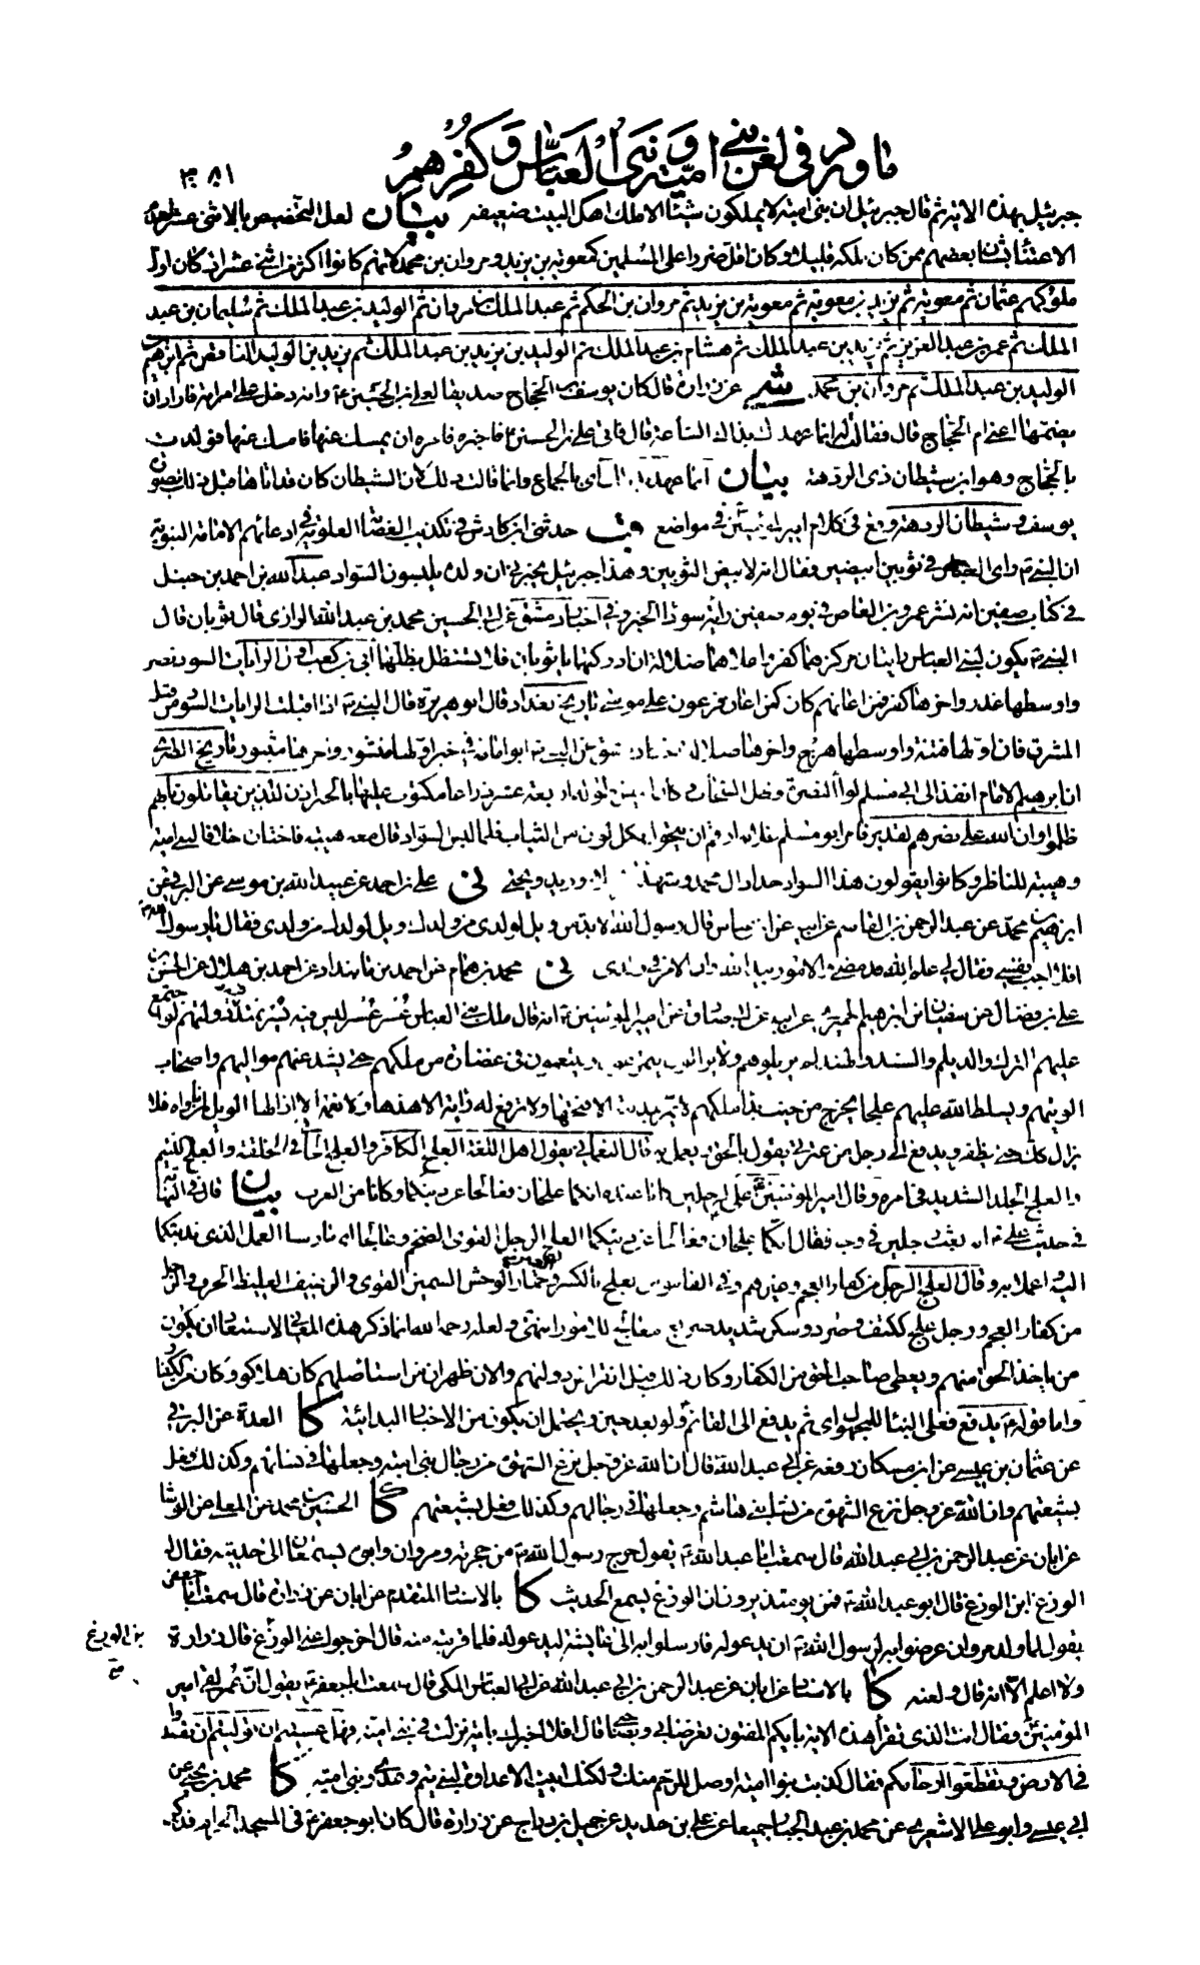 ما ورد في لعن بني امية وبني العباس وكفرهم
٣٨١
جبرئيل بهذه الاية ثم قال جبرئيل ان بني امية لا يملكون شيئا الا ملك اهل البيت ضعفيه بيان لعل التخصيص بالاثني عشر لعدم
الاعتناء بشأن بعضهم ممن كان ملكه قليلا وكان اقل ضررا على المسلمين كمعوية بن يزيد ومروان بن محمد فانهم كانوا اكثر من اثني عشر اذ كان اول
ملوكهم عثمان ثم معوية ثم يزيد بن معوية ثم معوية بن يزيد ثم مروان بن الحكم ثم عبد الملك بن مروان ثم الوليد بن عبد الملك ثم سليمان بن عبد
الملك ثم عمر بن عبد العزيز ثم يزيد بن عبد الملك ثم هشام بن عبد الملك ثم الوليد بن يزيد بن عبد الملك ثم يزيد بن الوليد الناقص ثم ابرهيم بن
الوليد بن عبد الملك ثم مروان بن محمد عن زرارة قال كان يوسف ابو الحجاج صديقا لعلي بن الحسين ع وانه دخل على امراته فاراد ان
يضمها اعني ام الحجاج قال فقالت له انما عهدك بذاك الساعة قال فاتى علي بن الحسين ع فاخبره فامره ان يمسك عنها فامسك عنها فولدت
بالحجاج وهو ابن شيطان ذي الردهة بيان انما عهدك اي بالجماع وانما قالت ذلك لان الشيطان كان قد اتاها قبل ذلك بصورة
يوسف وشيطان الردهة وقع في كلام امير المؤمنين ع في مواضع قب حدثني ابن كادش في تكذيب العصابة العلوية في ادعائهم الامامة النبوية
ان النبي ص راى العباس في ثوبين ابيضين فقال انه لابيض الثوبين وهذا جبرئيل يخبرني ان ولده يلبسون السواد عبد الله بن احمد بن حنبل
في كتاب صفين انه نشر عمرو بن العاص في يوم صفين راية سوداء الخبر وفي اخبار دمشق عن ابي الحسين محمد بن عبد الله الرازي قال ثوبان قال
النبي ص يكون لبني العباس رايتان مركزهما كفر واعلاهما ضلالة ان ادركتها يا ثوبان فلا تستظل بظلها ابي بن كعب اول الرايات السود نصر
واوسطها غدر واخرها كفر فمن اعانهم كان كمن اعان فرعون على موسى تاريخ بغداد قال ابو هريرة قال النبي ص اذا اقبلت الرايات السود من قبل
المشرق فان اولها فتنة واوسطها هرج واخرها ضلالة عن النبي ص ابو امامة في خبر اولها منشور واخرها مثبور تاريخ الطبري
ان ابرهيم الامام انفذ الى ابي مسلم لواء النصرة وظل السحاب وكان ابيض طوله اربعة عشر ذراعا مكتوب عليها بالحبر اذن للذين يقاتلون بانهم
ظلموا وان الله على نصرهم لقدير فامر ابو مسلم غلامه ارقم ان يتحول بكل لون من الثياب فلما لبس السواد قال معه هيبة فاختاره خلافا لبني امية
وهيبة للناظر وكانوا يقولون هذا السواد حداد ال محمد وشهداء زيد ويحيى ني علي بن احمد عن عبيد الله بن موسى عن البرقي عن
ابرهيم بن محمد عن عبد الرحمن بن القاسم عن ابيه عن ابن عباس قال رسول الله لابيه ويل لولدي من ولدك وويل لولدك من ولدي فقال يا رسول
افلا اجب نفسي فقال ان علم الله قد مضى والامور بيد الله وان الامر في ولدي ني محمد بن همام عن احمد بن مابنداد عن احمد بن هلال عن الحسن بن
علي بن فضال عن سفيان بن ابرهيم الجريري عن ابيه عن ابي صادق عن امير المؤمنين ع انه قال ملك بني العباس عسر يسر ليس فيه دولتهم لو اجتمع
عليهم الترك والديلم والسند والهند لم يزيلوهم ولا يزالون يتنعمون في غضارة من ملكهم حتى يشذ عنهم مواليهم واصحاب
الويتهم ويسلط الله عليهم علجا يخرج من حيث بدا ملكهم لا يمر بمدينة الا فتحها ولا ترفع له راية الا هدها ولا نعمة الا ازالها الويل لمن ناواه فلا
يزال كذلك حتى يظفر ويدفع الى رجل من عترتي يقول بالحق ويعمل به قال النعماني يقول اهل اللغة العلج الكافر والعلج الجافي في الخلقة والعلج اللئيم
والعلج الجلد الشديد في امره وقال امير المؤمنين علي ع لرجلين كانا عنده انكما علجان فعالجا عن دينكما وكانا من العرب بيان قال في النهاية
في حديث علي ع انه بعث رجلين في وجه فقال انكما علجان فعالجا عن دينكما العلج الرجل القوي الضخم وعالجا اي مارسا العمل الذي ندبتكما
اليه واعملا به وقال العلج الرجل من كفار العجم وغيرهم وفي القاموس العلج بالكسر وحمار الوحش السمين القوي والرغيف الغليظ الحرف والرجل
من كفار العجم ورجل علج ككتف وصرد وسكر شديد صريع معالج للامور انتهى ولعله رحمه الله انما ذكر هذه المعاني لاستبعاد ان يكون
من ياخذ الحق منهم ويعطي صاحب الحق من الكفار وكان ذلك قبل انقراض دولتهم والان ظهر ان من استاصلهم كان هلاكو وكان من الكفار
واما قوله ع يدفع فعلى البناء للمجهول اي ثم يدفع الى القائم ع ولو بعد حين ويحتمل ان يكون من الاخبار البدائية كا العدة عن البرقي
عن عثمان بن عيسى عن ابن مسكان رفعه عن ابي عبد الله ع قال ان الله عز وجل نزع الشهوة من رجال بني امية وجعلها في نسائهم وكذلك فعل
بشيعتهم وان الله عز وجل نزع الشهوة من نساء بني هاشم وجعلها في رجالهم وكذلك فعل بشيعتهم كا الحسين بن محمد عن المعلى عن الوشا
عن ابان عن عبد الرحمن بن ابي عبد الله قال سمعت ابا عبد الله ع يقول خرج رسول الله ص من حجرته ومروان وابوه يستمعان الى حديثه فقال له
الوزغ ابن الوزغ قال ابو عبد الله ع فمن يومئذ يرون ان الوزغ يسمع الحديث كا بالاسناد المتقدم عن ابان عن زرارة قال سمعت ابا جعفر
يقول لما ولد مروان عرضوا به لرسول الله ص ان يدعو له فارسلوا به الى عائشة ليدعو له فلما قربته منه قال اخرجوا عني الوزغ قال زرارة
بن الوزغ
ولا اعلم الا انه قال ولعنه كا بالاسناد عن ابان عن عبد الرحمن بن ابي عبد الله عن ابي العباس المكي قال سمعت ابا جعفر ع يقول ان عمر لقي امير
المؤمنين ع فقال انت الذي تقرأ هذه الاية بايكم المفتون تعرض بي وبصاحبي قال افلا اخبرك باية نزلت في بني امية فهل عسيتم ان توليتم ان تفسدوا
في الارض وتقطعوا ارحامكم فقال كذبت بنو امية اوصل للرحم منك ولكنك ابيت الا عداوة لبني تيم وعدي وبني امية كا محمد بن يحيى عن
ابي عيسى وابو علي الاشعري عن محمد بن عبد الجبار جميعا عن علي بن حديد عن جميل بن دراج عن زرارة قال كان ابو جعفر ع في المسجد الحرام فذكر